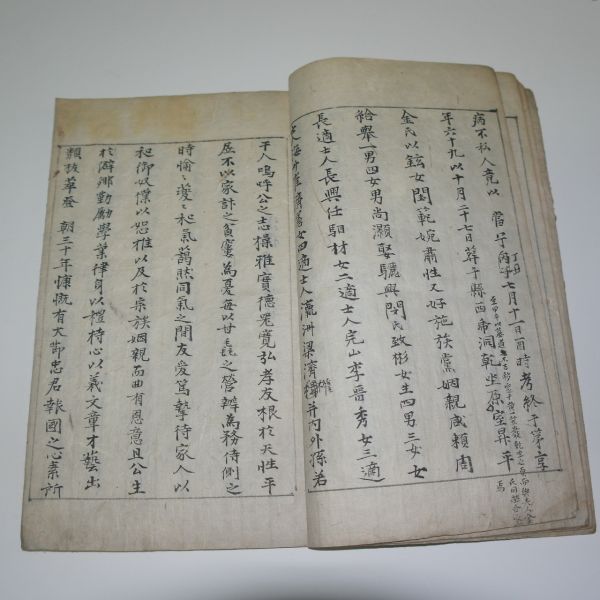 病不私人竟以 當宁丙子七月十一日酉時考終于第享
丁丑
年六十九以十月二十七日葬于縣西帝洞乾坐原室昇平
金氏以鉉女閨範婉肅性又好施族黨姻親咸賴周
給擧一男四女男尚灝娶驪興閔氏致彬女生四男三女女
長適士人長興任駬材女二適士人完山李晉秀女三適
女四適士人瀛洲梁濟權并內外孫若
干人嗚呼公之志操雅實德器寬弘孝友根於天性平
居不以家計之貧窶爲憂每以甘毳之營辦爲務侍側之
時愉愉㜳㜳和氣藹然同氣之間友愛篤摯待家人以
和御奴僕以恕推以及於宗族姻親曲有恩意且公生
於僻鄉勤勵學業律身以禮持心以義文章才藝出
類拔萃登 朝三十年慷慨有大節忠君報國之心素所